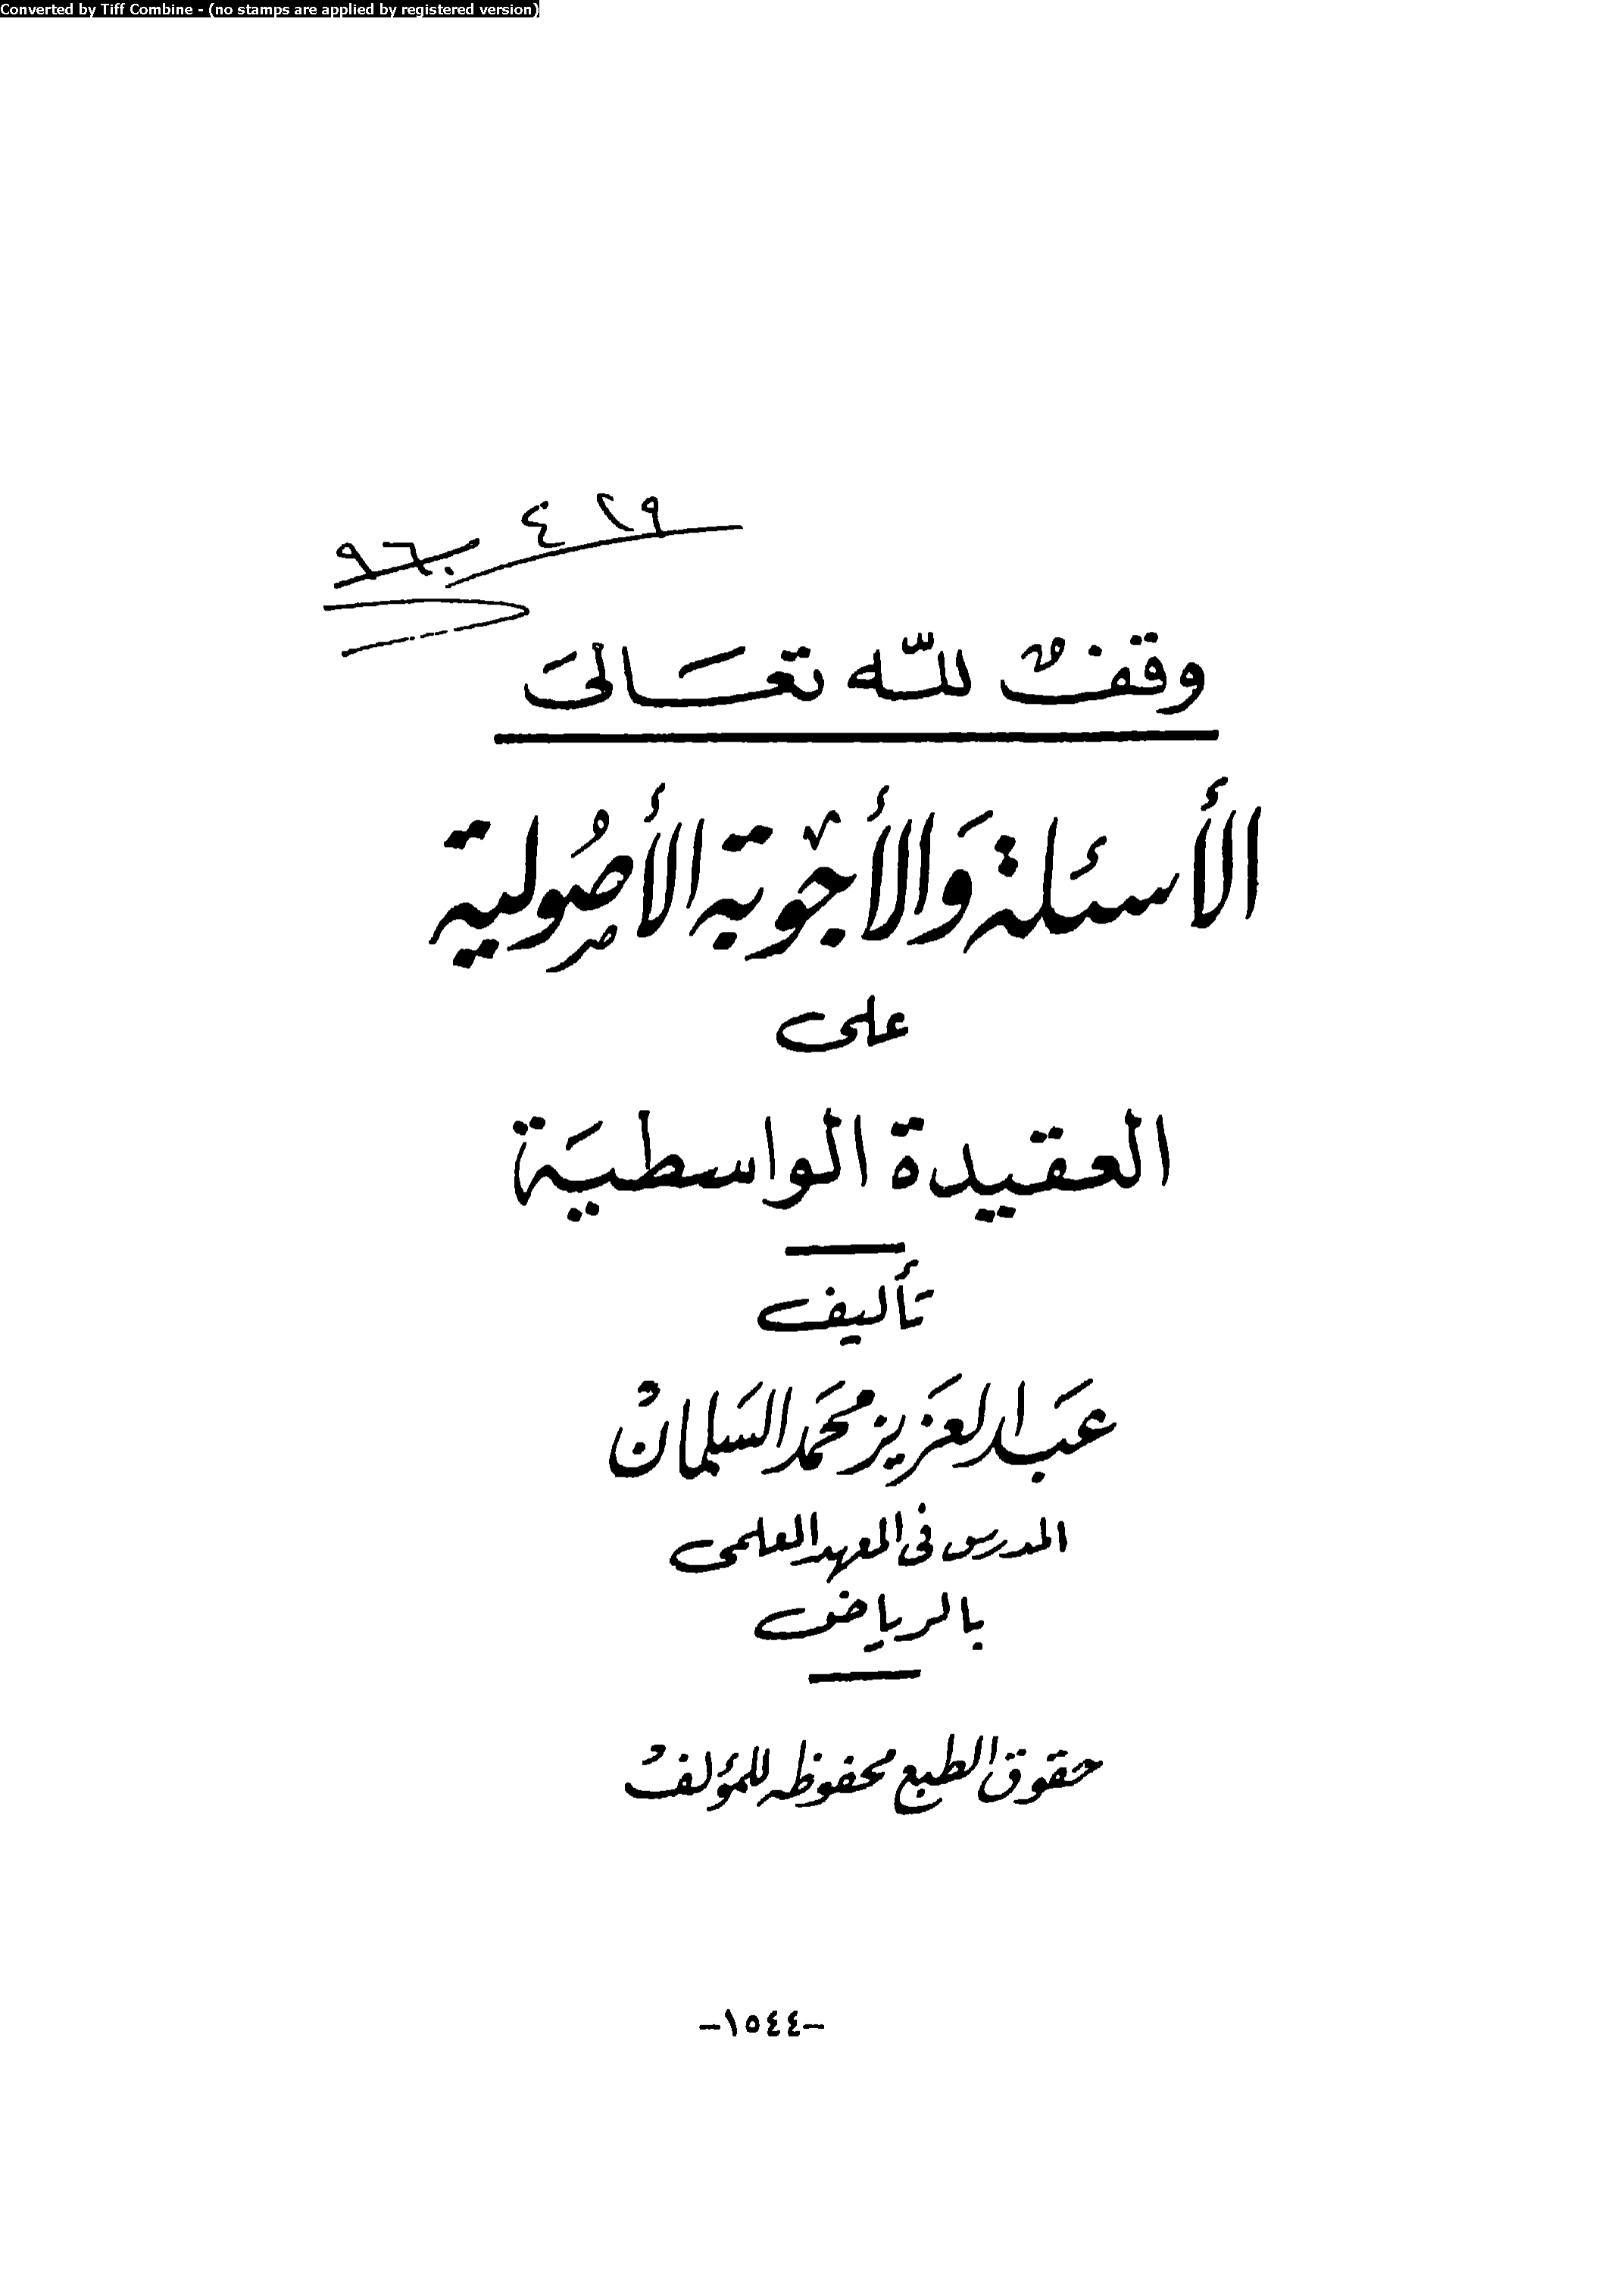 Converted by Tiff Combine - (no stamps are applied by registered version)
وقفٌ للّه تعَالىَ
الأسئلة وَالأجْوبة الأصُولية
على
العقيدة الواسطيَة
تأليف
عَبد العَزيز محمَد السَلمان
المدرس فى المعهد العلمى
بالرياض
حقوق الطبع محفوظه للمؤلف
-١٥٤٤-